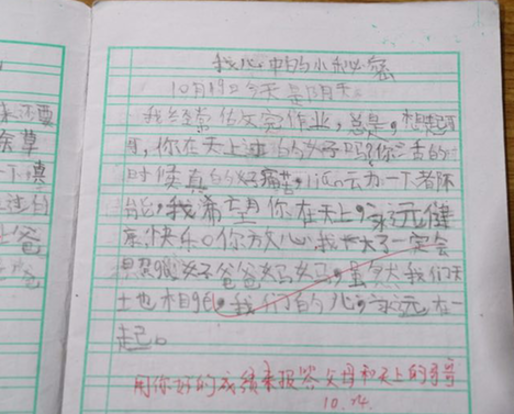 我心中的小秘密
10月19日 今天是阴天
我经常做完作业,总是,想起哥
哥,你在天上过的好吗?你活的
时候真的好痛苦,lián云力一下都不
能,我希望你在天上,永远健
康快乐。你放心我长大了一定会
照顾好爸爸妈妈,虽然我们天
土也相隔,我们的心,永远在一
起。
用你好的成绩来报答父母和天上的哥哥
10.24
还要
草
一下
过的
爸